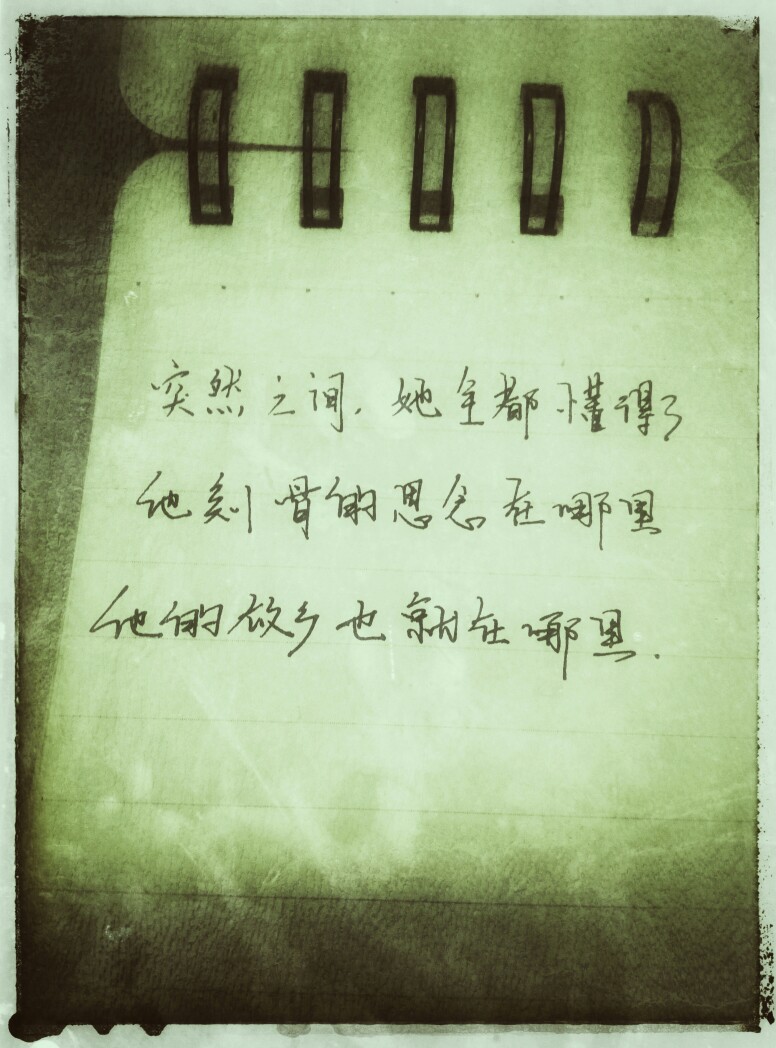 突然之间，她全都懂得了
他刻骨的思念在哪里
他的故乡也就在哪里.